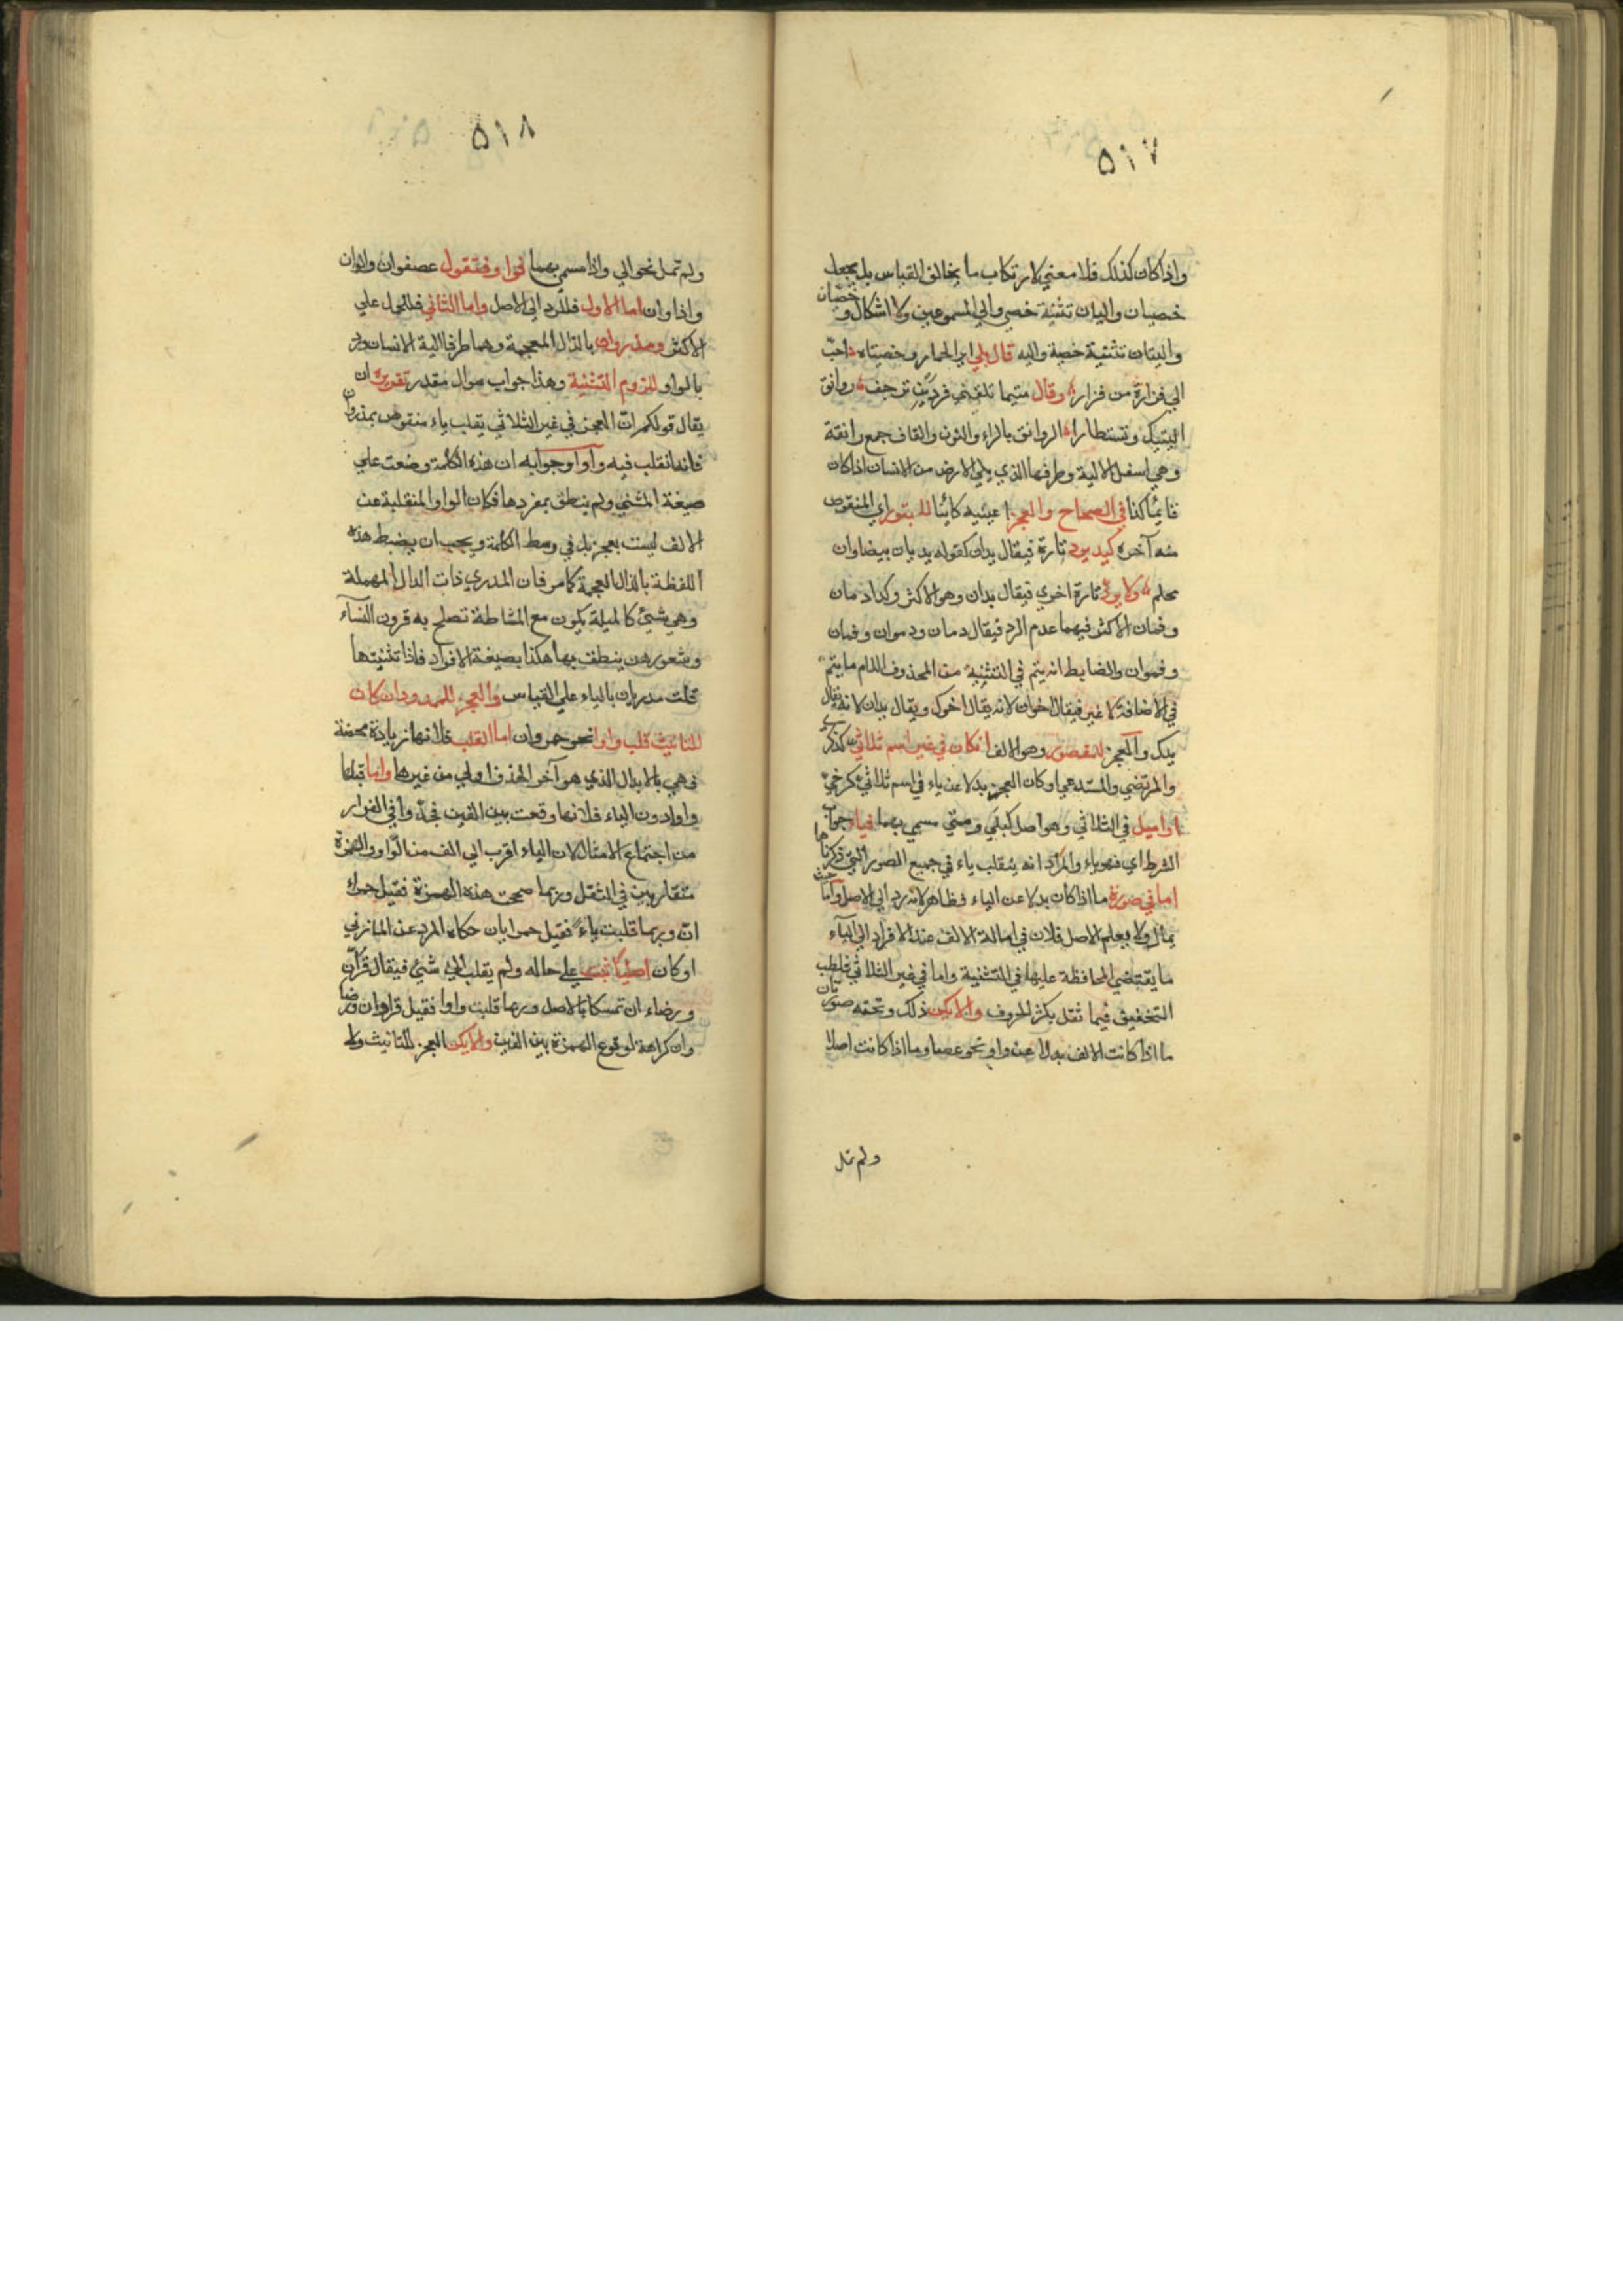 ٥١٧
واذا كان كذلك فلا معني لارتكاب ما يخالف القياس بل يجعل
خصيان واليان تثنية خصي والي المسموعين ولا اشكال و خصيتان
واليتان تثنية خصية واليه قال بلي اير الحمار وخصيتاه احب
الي فزارة من فزار وقال متيما تلقني فردين ترجف روانق
اليتيك وتستطارا الروانق بالراء والنون والقاف جمع رانقة
وهي اسفل الالية وطرفها الذي يلي الارض من الانسان اذا كان
قائما كذا في الصحاح والعجز اعينيه كائنا للمبتور اي المنقوص
منه آخره كيد يرد تارة فيقال يديان كقوله يديان بيضاوان
محلم ولا يرد تارة اخري فيقال يدان وهو الاكثر وكذا دمان
وفمان الاكثر فيهما عدم الرد فيقال دمان ودموان وفمان
وفموان والضابط انه يتم في التثنية من المحذوف اللام ما يتم
في الاضافة لا غير فيقال اخوان لانه يقال اخوك ويقال يدان لانه يقال
يدك والعجز للمقصور وهو الالف ان كان في غير اسم ثلاثي كذكري
والمرتضي والمستدعي او كان العجز بدلا عن ياء في اسم ثلاثي كرحي
او اميل في الثلاثي وهو اصل كبلي ومتي مسمي بهما فياء جواب
الشرط اي فهو ياء والمراد انه ينقلب ياء في جميع الصور التي ذكرناها
اما في صورة ما اذا كان بدلا عن الياء فظاهر لانه رد الي الاصل واما حيث
يمال ولا يعلم الاصل فلان في امالة الالف عند الافراد الي الياء
ما يقتضي المحافظة عليها في التثنية واما في غير الثلاثي فلطلب
التخفيف فيما ثقل بكثرة الحروف والا يكن ذلك وتحته صورتان
ما اذا كانت الالف بدلا عن واو نحو عصا وما اذا كانت اصلا
ولم تمل
٥١٨
ولم تمل نحو الي واذا مسمي بهما فواو فتقول عصوان والوان
واذاوان اما الاول فللرد الي الاصل واما الثاني فللحمل علي
الاكثر ومذروان بالذال المعجمة وهما طرفا الية الانسان ورد
بالواو للزوم التثنية وهذا جواب سوال مقدر تقريره ان
يقال قولكم ان العجز في غير الثلاثي يقلب ياء منقوض بمذروان
فانه انقلب فيه واوا وجوابه ان هذه الكلمة وضعت علي
صيغة المثني ولم ينطق بمفردها فكان الواو المنقلبة عن
الالف ليست بعجز بل في وسط الكلمة ويجب ان يضبط هذه
اللفظة بالذال المعجمة كما مر فان المدري ذات الدال المهملة
وهي شيئ كالمسلة يكون مع المشاطة تصلح به قرون النساء
وشعورهن ينطق بها هكذا بصيغة الافراد فاذا تثنيتها
قلت مدريان بالياء علي القياس والعجز للممدود ان كان
للتانيث قلب واوا نحو حمراوان اما القلب فلانها زيادة محضة
فهي بالابدال الذي هو آخر الحذف اولي من غيرها وانما قبلها
واوا دون الياء فلانها وقعت بين الفين فجدوا في الفرار
من اجتماع الامثال لان الياء اقرب الي الف من الواو والهمزة
متقاربين في الثقل وربما صححت هذه الهمزة فقيل حمراء
ان وربما قلبت ياء فقيل حمرايان حكاه المبرد عن المازني
او كان اصليا ثبت علي حاله ولم يقلب الي شيئ فيقال قراآن
ورضاء ان تمسكا بالاصل وربما قلبت واوا فقيل قراوان ورضا
وان كراهة لوقوع الهمزة بين الفين والا يكن العجز للتانيث ولا